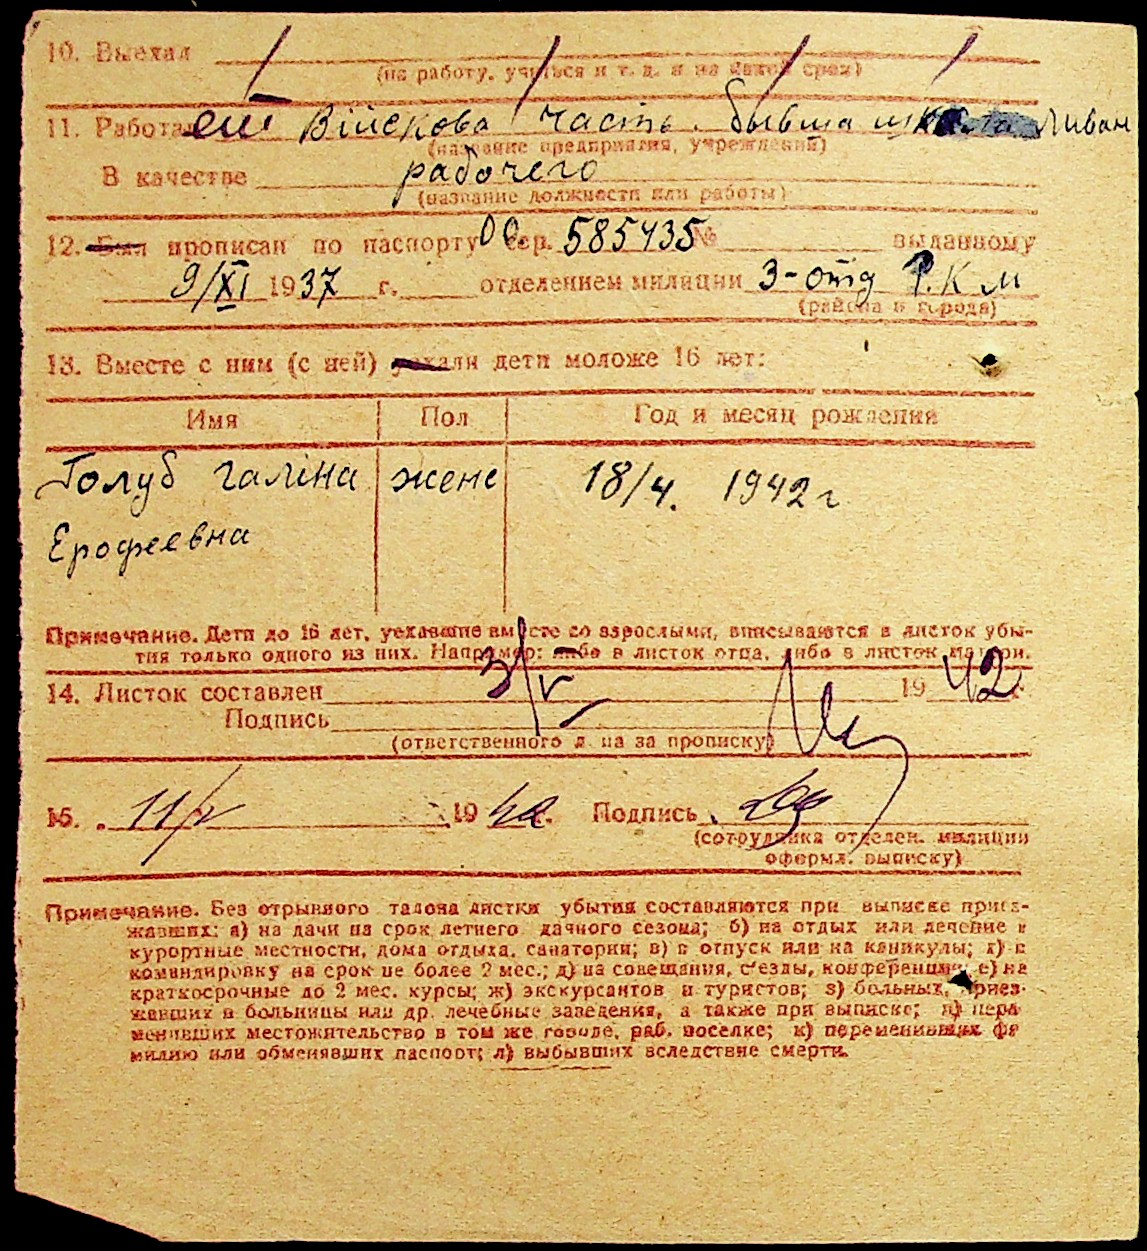 10. Выехал
(на работу, учиться и т. д. и на какой срок)
11. Работает Війскова часть. бывша
(название предприятия, учреждений)
В качестве рабочего
(название должности или работы)
12. Был прописан по паспорту сер. 585435 № выданному
9/XI 1937 г. отделением милиции 3-отд Р.К м
(района и города)
13. Вместе с ним (с ней) уехали дети моложе 16 лет:
Имя Пол Год и месяц рождения
Голуб галіна жене 18/4. 1942 г
Ерофеевна
Примечание. Дети до 16 лет, уехавшие вместе со взрослыми, вписываются в листок убы-
тия только одного из них. Например: либо в листок отца, либо в листок матери.
14. Листок составлен 3/V 1942 г.
Подпись
(ответственного л-ца за прописку)
15. 11/V 1942. Подпись
(сотрудника отделен. милиции
оформл. выписку)
Примечание. Без отрывного талона листки убытия составляются при выписке приез-
жавших: а) на дачи на срок летнего дачного сезона; б) на отдых или лечение в
курортные местности, дома отдыха, санатории; в) в отпуск или на каникулы; г) в
командировку на срок не более 2 мес.; д) на совещания, с'езды, конференции; е) на
краткосрочные до 2 мес. курсы; ж) экскурсантов и туристов; з) больных, приез-
жавших в больницы или др. лечебные заведения, а также при выписке; и) пере
менивших местожительство в том же городе, раб. поселке; к) переменивших фа
милию или обменявших паспорт; л) выбывших вследствие смерти.